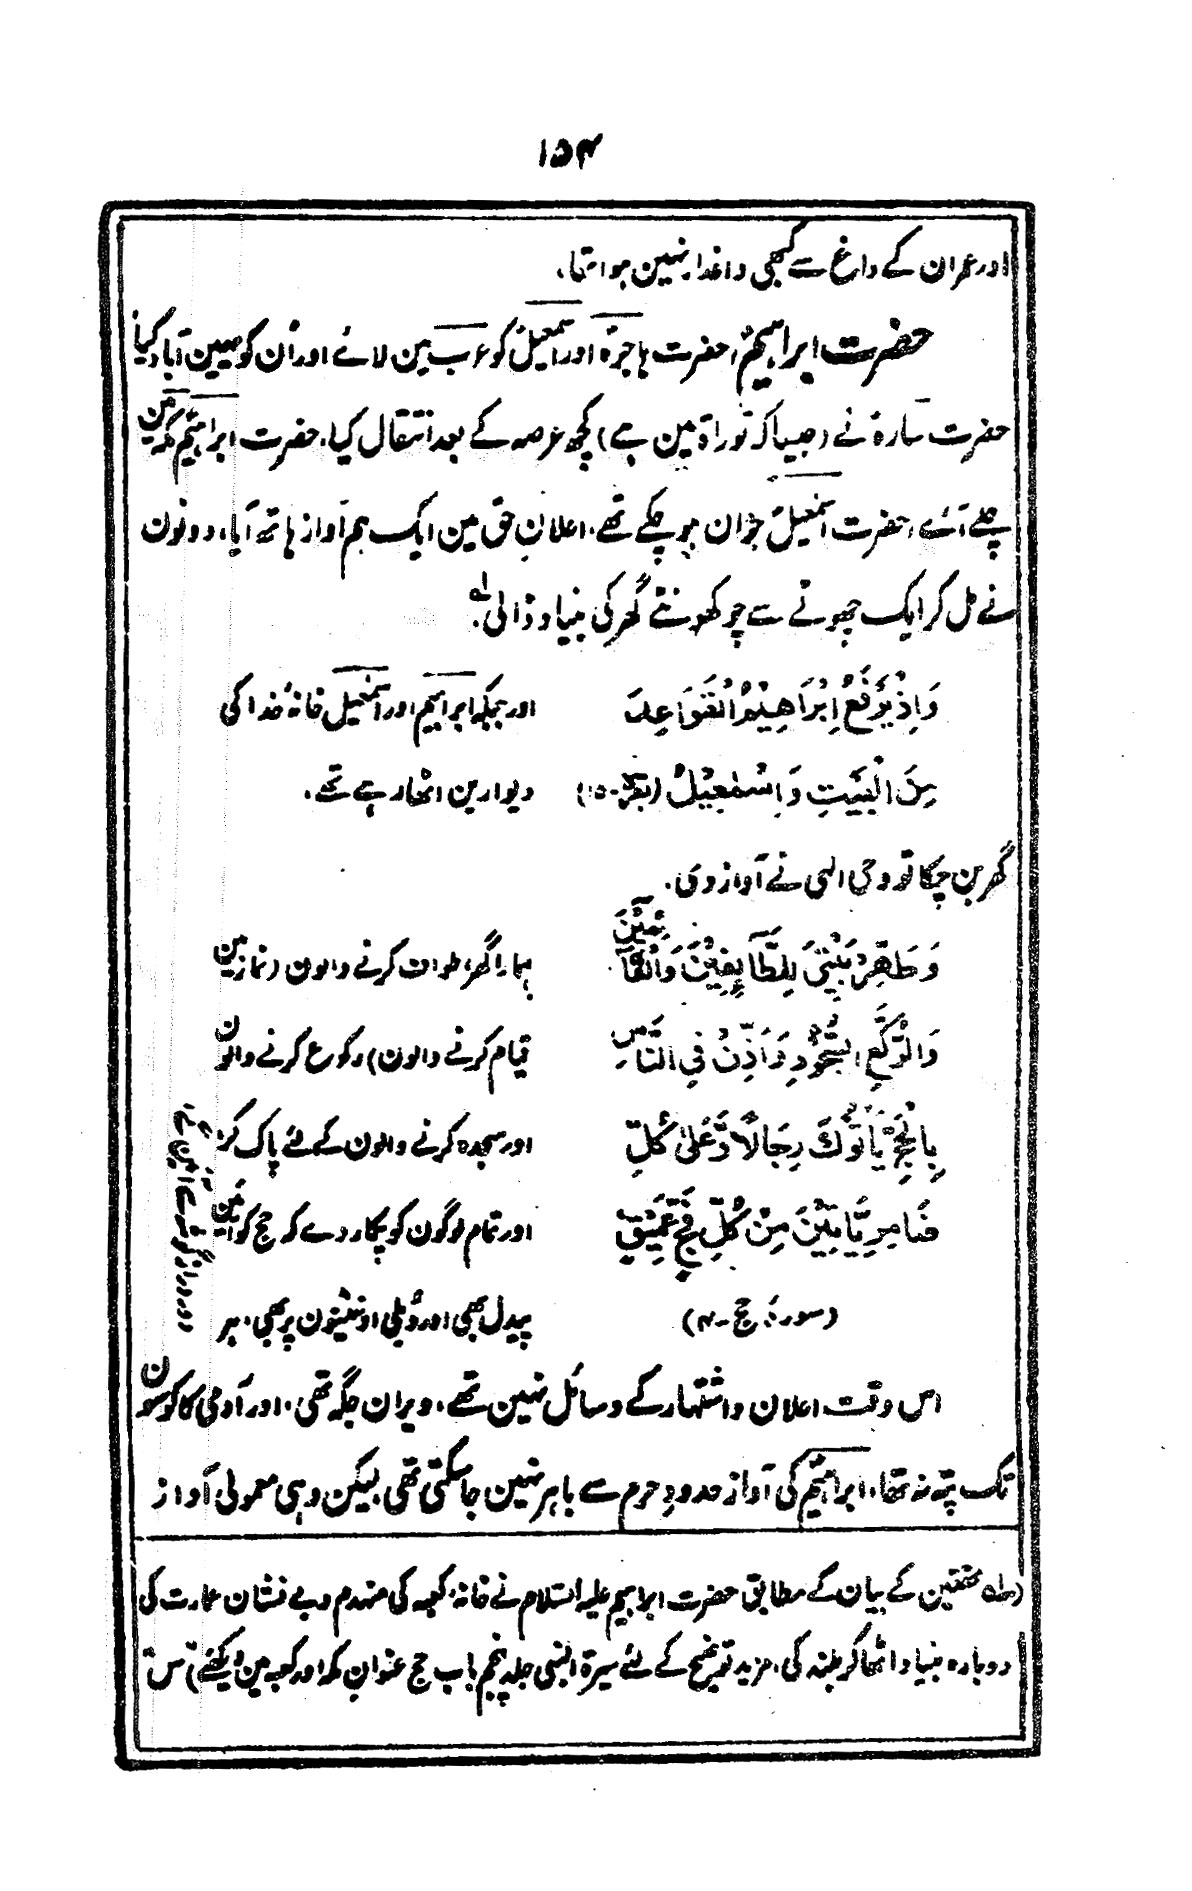 ۱۵۴
اور عمران کے داغ سے کبھی داغدار نہین ہوا تھا،
حضرت ابراہیمؑ، حضرت ہاجرہؓ اور اسمٰعیلؑ کو عرب مین لائے اور اُن کو یہین آباد کیا
حضرت سارہؓ نے (جیسا کہ توراۃ مین ہے) کچھ عرصہ کے بعد انتقال کیا، حضرت ابراہیمؑ مکہ مین
چلے آئے، حضرت اسمٰعیلؑ جوان ہو چکے تھے، اعلانِ حق مین ایک ہم آواز ہاتھ آیا، دونون
نے مل کر ایک چھوٹے سے چوکھونٹے گھر کی بنیاد ڈالی،ؔ
وَاِذْ یَرْفَعُ اِبْرَاھِیْمُ الْقَوَاعِدَ اور جبکہ ابراہیم اور اسمٰعیل خانۂ خدا کی
مِنَ الْبَیْتِ وَاِسْمٰعِیْلُ (بقرہ-۱۵) دیوارین اٹھا رہے تھے،
گھر بن چکا تو وحی الٰہی نے آواز دی،
وَطَھِّرْ بَیْتِیَ لِلطَّآئِفِیْنَ وَالْقَآئِمِیْنَ ہمارا گھر، طواف کرنے والون (نماز مین
وَالرُّکَّعِ السُّجُوْدِ وَاَذِّنْ فِی النَّاسِ قیام کرنے والون) رکوع کرنے والون
بِالْحَجِّ یَاْتُوْکَ رِجَالًا وَّعَلٰی کُلِّ اور سجدہ کرنے والون کے لئے پاک کر،
ضَامِرٍ یَّاْتِیْنَ مِنْ کُلِّ فَجٍّ عَمِیْقٍ اور تمام لوگون کو پکار دے کہ حج کو آئین
(سورۂ حج-۴) پیدل بھی اور دُبلی اونٹنیون پر بھی، ہر
دور دراز گوشے سے آئین گے،
اس وقت اعلان و اشتہار کے وسائل نہین تھے، ویران جگہ تھی، اور آدمی کا کوسون
تک پتہ نہ تھا، ابراہیمؑ کی آواز حدودِ حرم سے باہر نہین جا سکتی تھی لیکن وہی معمولی آواز
(ؔ محققین کے بیان کے مطابق حضرت ابراہیم علیہ السلام نے خانۂ کعبہ کی منہدم و بے نشان عمارت کی
دوبارہ بنیاد اٹھا کر بلند کی، مزید توضیح کے لئے سیرۃ النبی جلد پنجم باب حج عنوان مکہ اور کعبہ مین دیکھئے) "س"